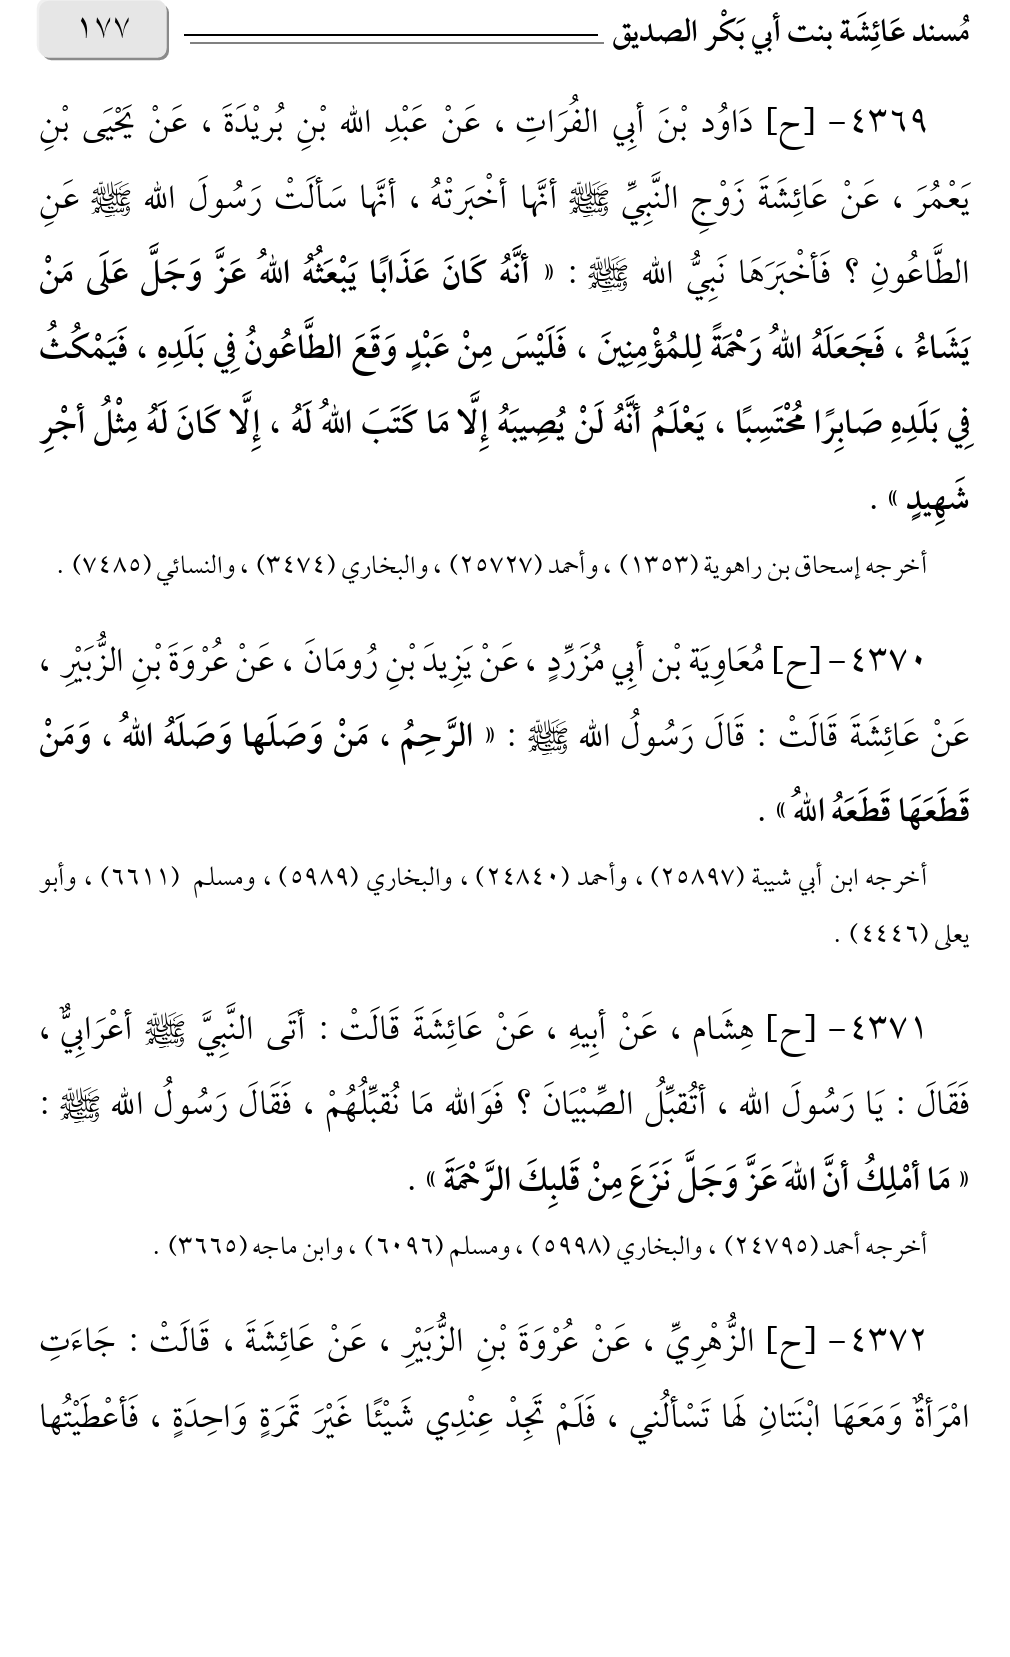 مُسند عَائِشَة بنت أبي بَكْر الصديق
١٧٧
٤٣٦٩- [ح] دَاوُد بْنَ أبِي الفُرَاتِ ، عَنْ عَبْدِ الله بْنِ بُريْدَةَ ، عَنْ يَحْيَى بْنِ
يَعْمُرَ ، عَنْ عَائِشَةَ زَوْجِ النَّبِيِّ ﷺ أنَّها أخْبَرتْهُ ، أنَّها سَألَتْ رَسُولَ الله ﷺ عَنِ
الطَّاعُونِ ؟ فَأخْبَرَهَا نَبِيُّ الله ﷺ : « أنَّهُ كَانَ عَذَابًا يَبْعَثُهُ اللهُ عَزَّ وَجَلَّ عَلَى مَنْ
يَشَاءُ ، فَجَعَلَهُ اللهُ رَحْمَةً لِلمُؤْمِنِينَ ، فَلَيْسَ مِنْ عَبْدٍ وَقَعَ الطَّاعُونُ فِي بَلَدِهِ ، فَيَمْكُثُ
فِي بَلَدِهِ صَابِرًا مُحْتَسِبًا ، يَعْلَمُ أنَّهُ لَنْ يُصِيبَهُ إِلَّا مَا كَتَبَ اللهُ لَهُ ، إِلَّا كَانَ لَهُ مِثْلُ أجْرِ
شَهِيدٍ » .
أخرجه إسحاق بن راهوية (١٣٥٣) ، وأحمد (٢٥٧٢٧) ، والبخاري (٣٤٧٤) ، والنسائي (٧٤٨٥) .
٤٣٧٠- [ح] مُعَاوِيَة بْن أبِي مُزَرِّدٍ ، عَنْ يَزِيدَ بْنِ رُومَانَ ، عَنْ عُرْوَةَ بْنِ الزُّبَيْرِ ،
عَنْ عَائِشَةَ قَالَتْ : قَالَ رَسُولُ الله ﷺ : « الرَّحِمُ ، مَنْ وَصَلَها وَصَلَهُ اللهُ ، وَمَنْ
قَطَعَهَا قَطَعَهُ اللهُ » .
أخرجه ابن أبي شيبة (٢٥٨٩٧) ، وأحمد (٢٤٨٤٠) ، والبخاري (٥٩٨٩) ، ومسلم (٦٦١١) ، وأبو
يعلى (٤٤٤٦) .
٤٣٧١- [ح] هِشَام ، عَنْ أبِيهِ ، عَنْ عَائِشَةَ قَالَتْ : أتَى النَّبِيَّ ﷺ أعْرَابِيٌّ ،
فَقَالَ : يَا رَسُولَ الله ، أتُقبِّلُ الصِّبْيَانَ ؟ فَوَالله مَا نُقبِّلُهُمْ ، فَقَالَ رَسُولُ الله ﷺ :
« مَا أمْلِكُ أنَّ اللهَ عَزَّ وَجَلَّ نَزَعَ مِنْ قَلبِكَ الرَّحْمَةَ » .
أخرجه أحمد (٢٤٧٩٥) ، والبخاري (٥٩٩٨) ، ومسلم (٦٠٩٦) ، وابن ماجه (٣٦٦٥) .
٤٣٧٢- [ح] الزُّهْرِيِّ ، عَنْ عُرْوَةَ بْنِ الزُّبَيْرِ ، عَنْ عَائِشَةَ ، قَالَتْ : جَاءَتِ
امْرَأةٌ وَمَعَهَا ابْنَتانِ لَها تَسْألُني ، فَلَمْ تَجِدْ عِنْدِي شَيْئًا غَيْرَ تَمرَةٍ وَاحِدَةٍ ، فَأعْطَيْتُها